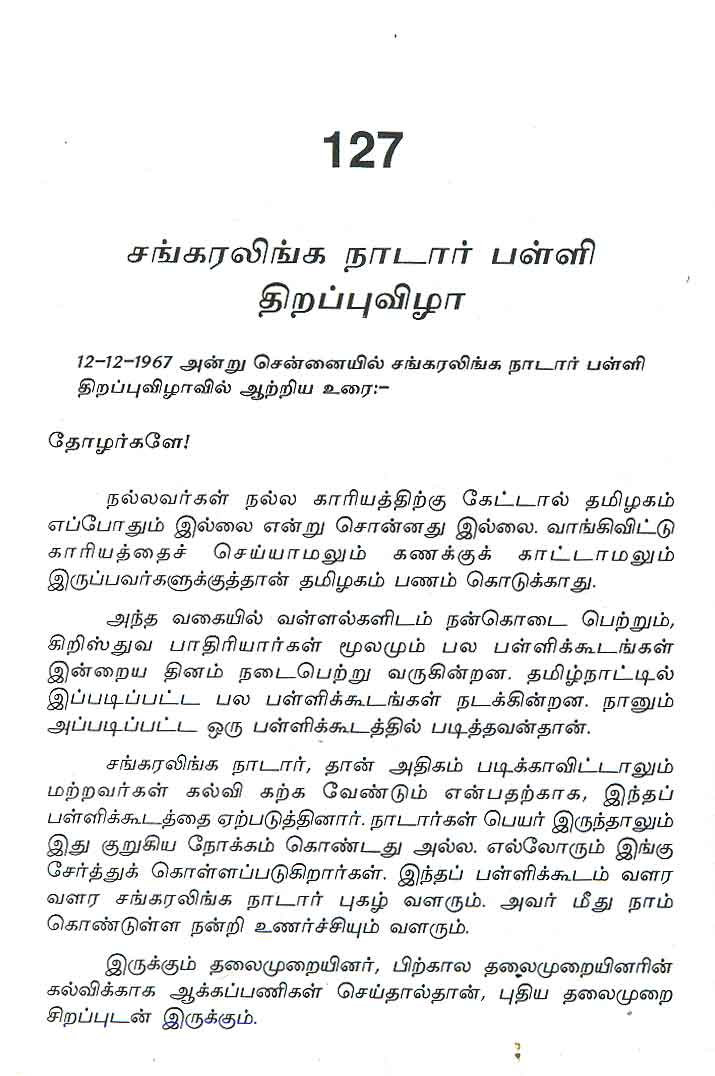 127
சங்கரலிங்க நாடார் பள்ளி
திறப்புவிழா
12-12-1967 அன்று சென்னையில் சங்கரலிங்க நாடார் பள்ளி
திறப்புவிழாவில் ஆற்றிய உரை:-
தோழர்களே!
நல்லவர்கள் நல்ல காரியத்திற்கு கேட்டால் தமிழகம்
எப்போதும் இல்லை என்று சொன்னது இல்லை. வாங்கிவிட்டு
காரியத்தைச் செய்யாமலும் கணக்குக் காட்டாமலும்
இருப்பவர்களுக்குத்தான் தமிழகம் பணம் கொடுக்காது.
அந்த வகையில் வள்ளல்களிடம் நன்கொடை பெற்றும்,
கிறிஸ்துவ பாதிரியார்கள் மூலமும் பல பள்ளிக்கூடங்கள்
இன்றைய தினம் நடைபெற்று வருகின்றன. தமிழ்நாட்டில்
இப்படிப்பட்ட பல பள்ளிக்கூடங்கள் நடக்கின்றன. நானும்
அப்படிப்பட்ட ஒரு பள்ளிக்கூடத்தில் படித்தவன்தான்.
சங்கரலிங்க நாடார், தான் அதிகம் படிக்காவிட்டாலும்
மற்றவர்கள் கல்வி கற்க வேண்டும் என்பதற்காக, இந்தப்
பள்ளிக்கூடத்தை ஏற்படுத்தினார். நாடார்கள் பெயர் இருந்தாலும்
இது குறுகிய நோக்கம் கொண்டது அல்ல. எல்லோரும் இங்கு
சேர்த்துக் கொள்ளப்படுகிறார்கள். இந்தப் பள்ளிக்கூடம் வளர
வளர சங்கரலிங்க நாடார் புகழ் வளரும். அவர் மீது நாம்
கொண்டுள்ள நன்றி உணர்ச்சியும் வளரும்.
இருக்கும் தலைமுறையினர், பிற்கால தலைமுறையினரின்
கல்விக்காக ஆக்கப்பணிகள் செய்தால்தான், புதிய தலைமுறை
சிறப்புடன் இருக்கும்.